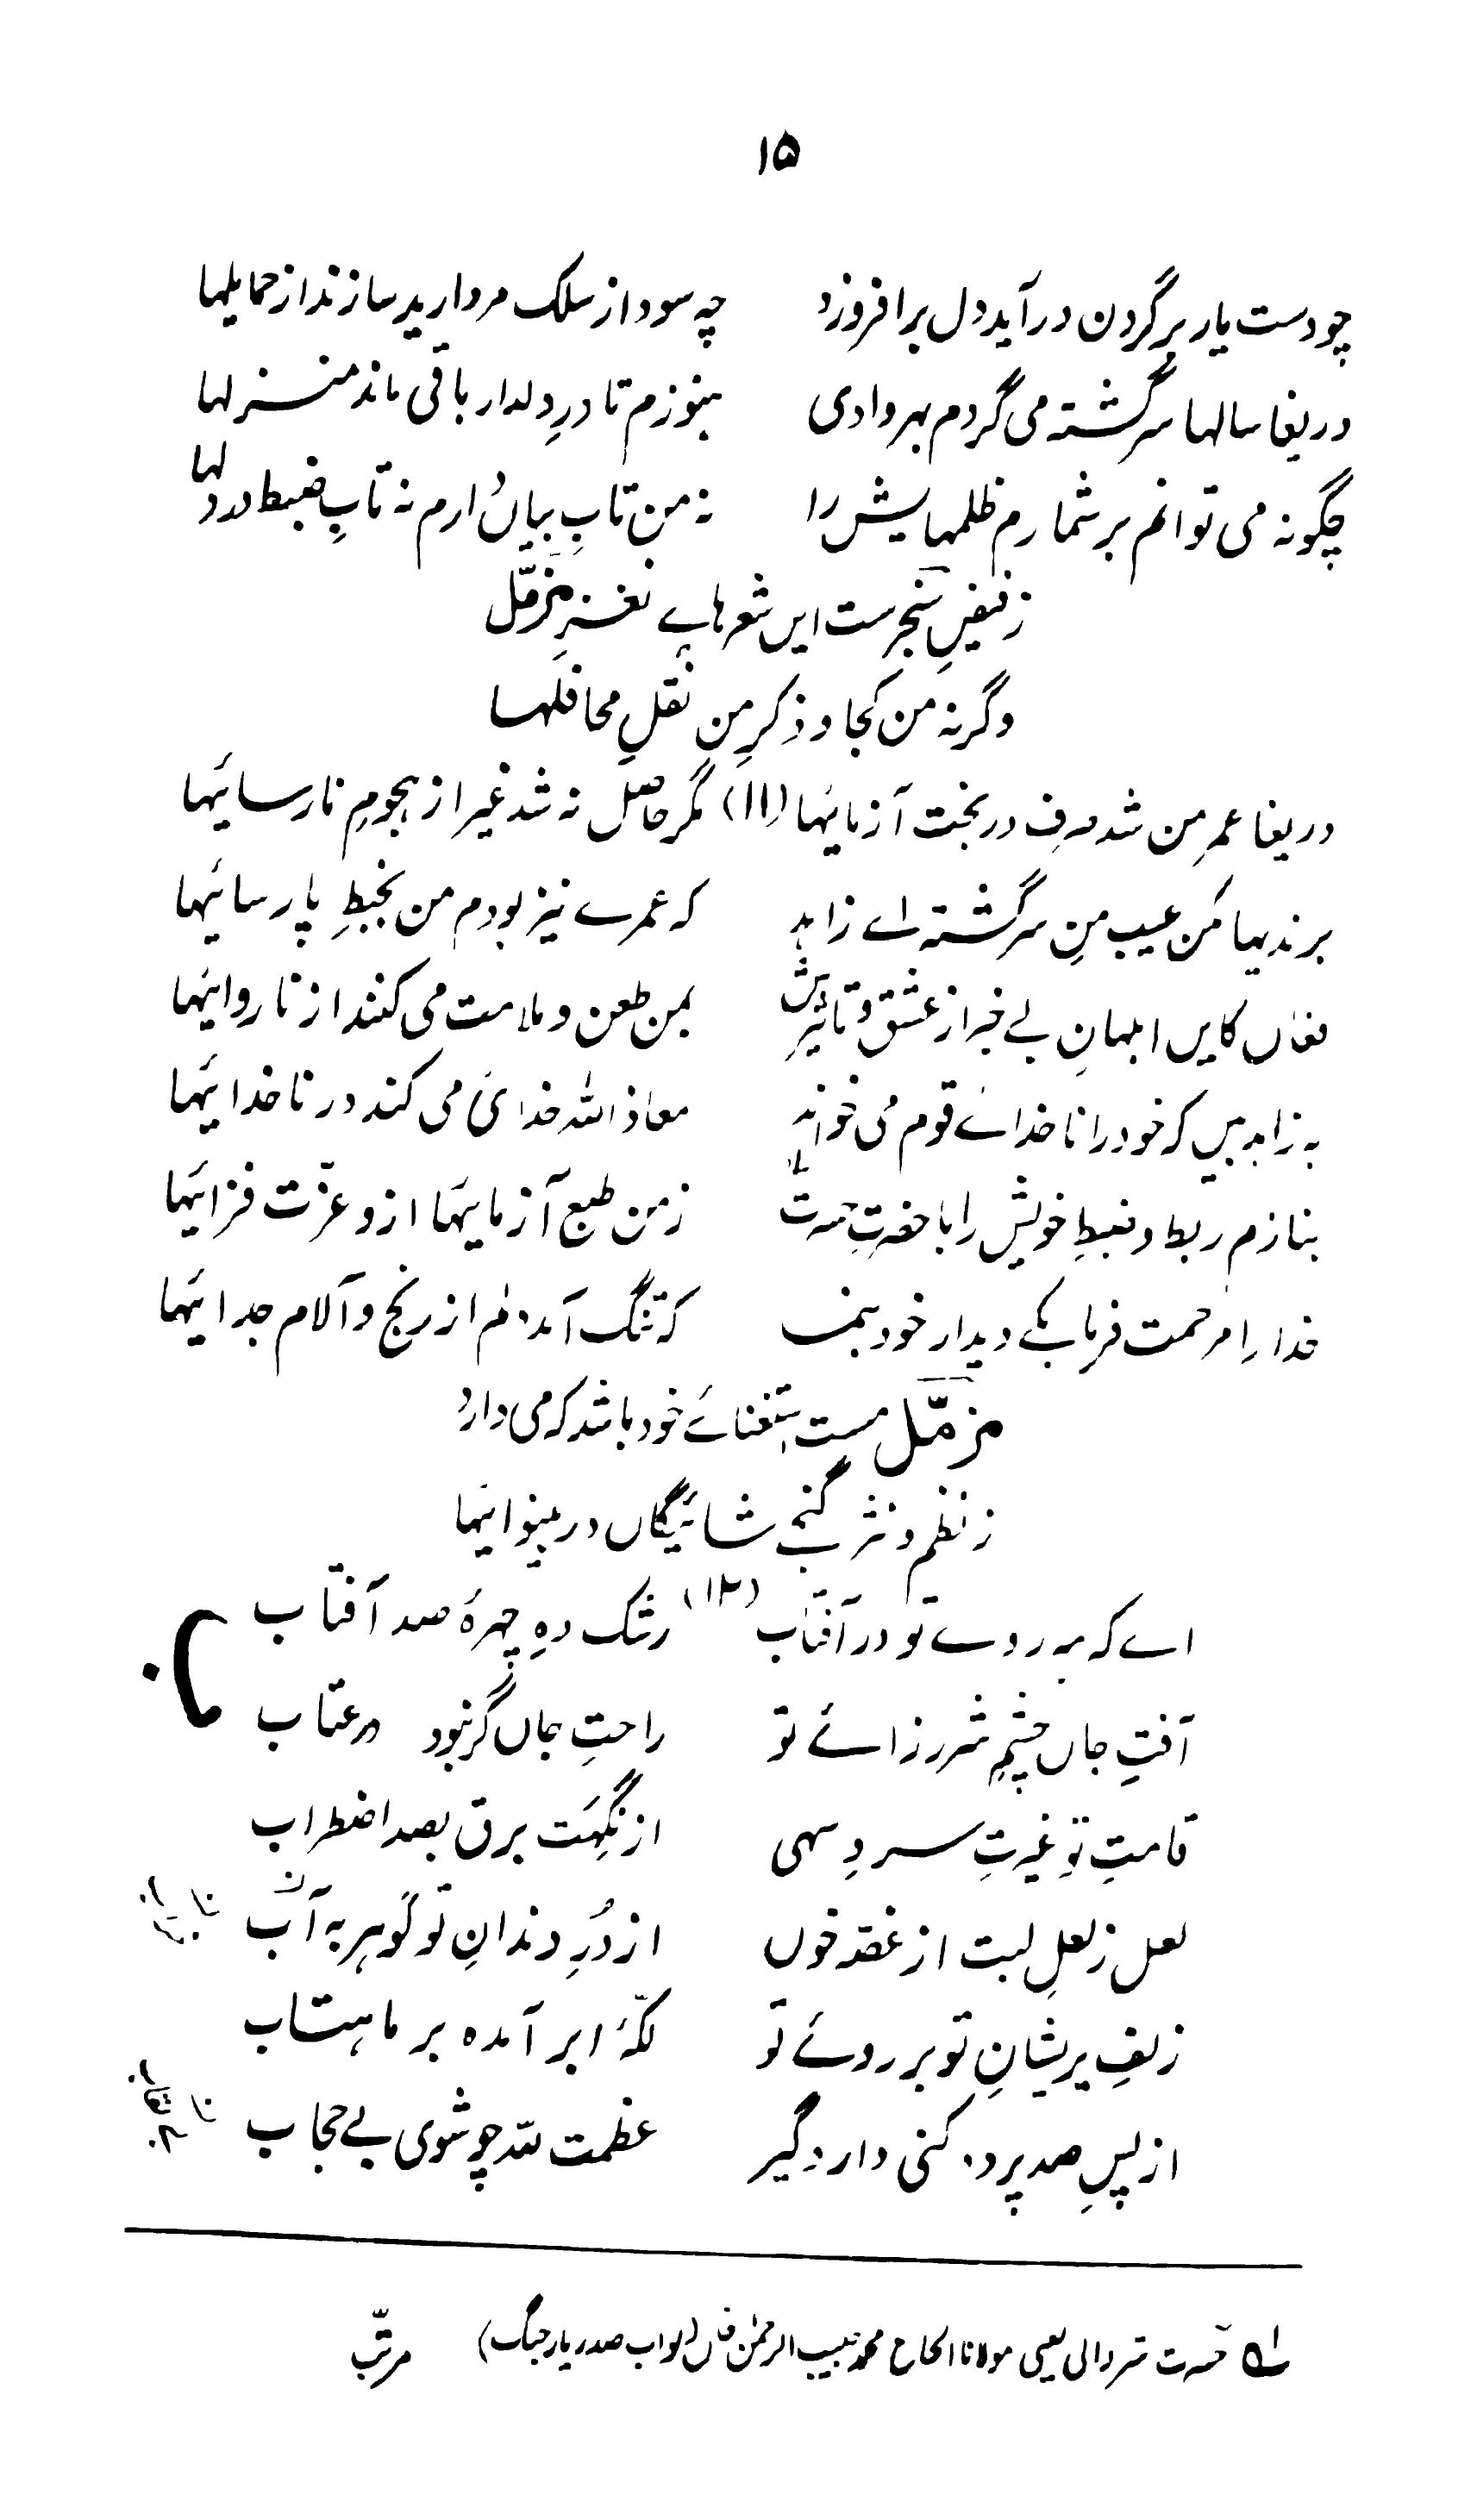 ۱۵
چو دست یار بر گردن در آید دل بر افروزد چه سود از سلک مروارید سازند از حمایلها
دریغا سالها سرگشته می گردم بهر وادی ہنوزم تا درِ دلدار باقی ماند منزلها
چگونه می توانم بر شمارم ظلمهایش را نه من تابِ بیاں دارم نه تابِ ضبط درد لہا
ز فیضِ سنجرست ایں شعرهاے نغزِ مزمّل
وگرنه من کجا و ذکرِ من نقلِ محافلہا
دریغا عمرِ من شد صرف در بخت آزمائیہا (۱۱) مگر حاصل نه شد غیر از ہجومِ نارسائیہا
برندیہا مکن عیب منِ سرگشته اے زاہد که عمرے نیز بودم من بخبطِ پارسائیہا
فغاں کایں ابلہانِ بے خبر از عشق و تاثیرش بمن طعن و ملامت می کنند از ناروائیہا
به زاہد بیں که خود را ناخداے قوم می خواند معاذ اللہ خدائی می کند در ناخدائیہا
بنازم ربط و ضبطِ خویش را با حضرتِ حسرت ز من طبع آزمائیہا ازو عزت فزائیہا
خدا را مرحمت فرما بیکے دیدار خود بمن که تنگ آمد دلم از رنج و آلام جدائیہا
مزمّل مست استغناے خود باشد که می دارد
ز نظم و نثر گنجے شائیگاں در بینوائیہا
اے که به روے تو در آفتاب (۱۲) رشک دہِ چہرهٔ صد آفتاب
آفتِ جاں چشمِ شررزاے تو راحتِ جاں گر نبود در عتاب
قامتِ تو غیرتِ سروِ سہی از نگہت برق بصد اضطراب
لعل ز لعلِ لبت از غصه خوں از دُرِ دندانِ تو گوہر به آب
زلفِ پریشانِ تو بر روے تو لکّهٔ ابر آمده بر ماہتاب
از پسِ صد پرده کنی دار و گیر عظمت للہ چو شوی بے حجاب
لہ حسرت شروانی یعنی مولانا الحاج محمد حبیب الرحمٰن خاں (نواب صدر یار جنگ) مرتّب